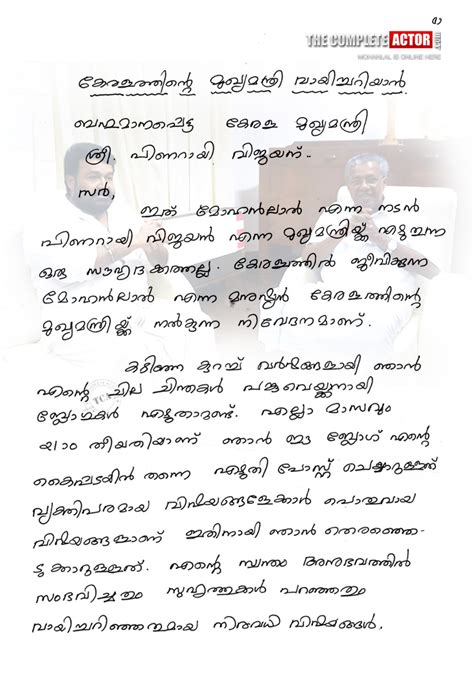 THE COMPLETE ACTOR
MOHANLAL IS ONLINE HERE
കേരളത്തിന്റെ മുഖ്യമന്ത്രി വായിച്ചറിയാൻ.
ബഹുമാനപ്പെട്ട കേരള മുഖ്യമന്ത്രി
ശ്രീ. പിണറായി വിജയന്..
സർ,
ഇത് മോഹൻലാൽ എന്ന നടൻ
പിണറായി വിജയൻ എന്ന മുഖ്യമന്ത്രിയ്ക്ക് എഴുതുന്ന
ഒരു സൗഹൃദക്കത്തല്ല. കേരളത്തിൽ ജീവിക്കുന്ന
മോഹൻലാൽ എന്ന മനുഷ്യൻ കേരളത്തിന്റെ
മുഖ്യമന്ത്രിയ്ക്ക് നൽകുന്ന നിവേദനമാണ്.
കഴിഞ്ഞ കുറച്ച് വർഷങ്ങളായി ഞാൻ
എന്റെ ചില ചിന്തകൾ പങ്കുവെയ്ക്കാനായി
ബ്ലോഗുകൾ എഴുതാറുണ്ട്. എല്ലാ മാസവും
21ാം തീയതിയാണ് ഞാൻ ഈ ബ്ലോഗ് എന്റെ
കൈപ്പടയിൽ തന്നെ എഴുതി പോസ്റ്റ് ചെയ്യാറുള്ളത്
വ്യക്തിപരമായ വിഷയങ്ങളേക്കാൾ പൊതുവായ
വിഷയങ്ങളാണ് ഇതിനായി ഞാൻ തെരഞ്ഞെ-
ടുക്കാറുള്ളത്. എന്റെ സ്വന്തം അനുഭവത്തിൽ
സംഭവിച്ചതും സുഹൃത്തുക്കൾ പറഞ്ഞതും
വായിച്ചറിഞ്ഞതുമായ നിരവധി വിഷയങ്ങൾ.